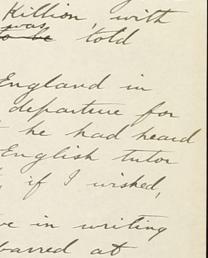 Killion, with
was
to be told
England in
departure for
he had heard
English tutor
if I wished,
in writing
barred at